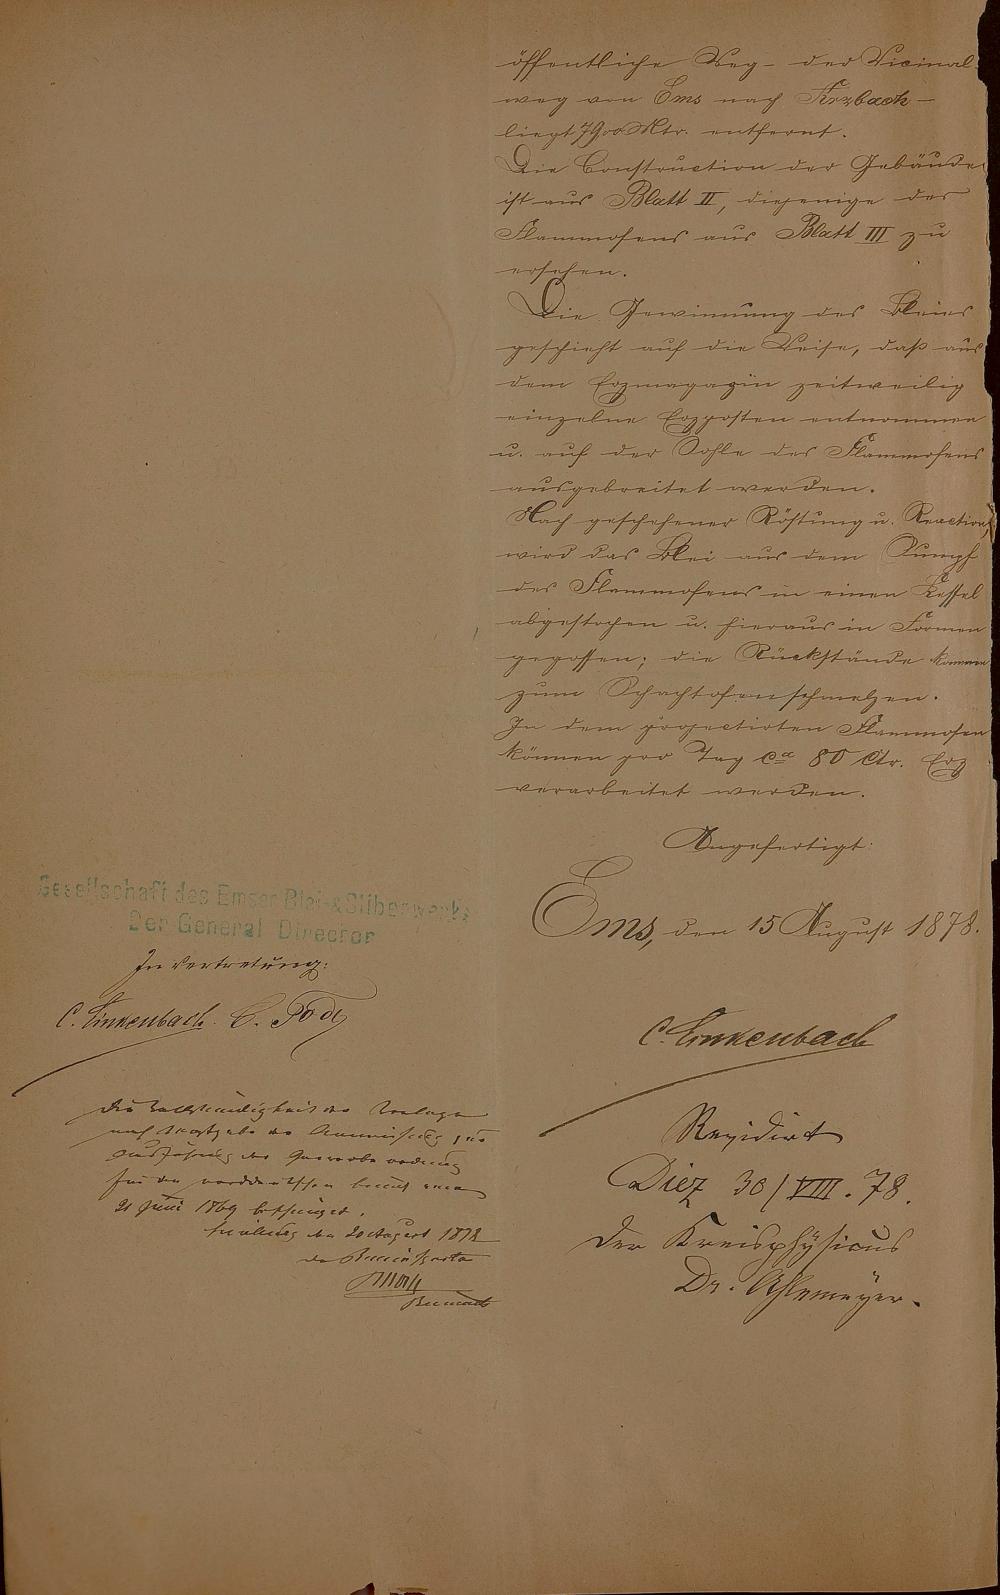 öffentliche Weg – der Vicinal-
weg von Ems nach –
liegt Mtr. entfernt.
Die Construction der Gebäude
ist aus Blatt II, diejenige des
Flammofens aus Blatt III zu
ersehen.
Die Gewinnung des Bleies
geschieht auf die Weise, daß aus
dem Erzmagazin zeitweilig
einzelne Erzposten entnommen
u. auf der Sohle des Flammofens
ausgebreitet werden.
Nach geschehener Röstung u. Reaction,
wird das Blei aus dem Sumpf
des Flammofens in einen Kessel
abgestochen u. hieraus in Formen
gegossen; die Rückstände kommen
zum Schachtofenschmelzen.
In dem projectirten Flammofen
können pro Tag ca 80 Ctr. Erz
verarbeitet werden.
Angefertigt:
Ems, den 15 August 1878.
C. Linkenbach
Revidirt
Diez 30/VIII. 78.
Der Kreisphysicus
Dr. Ahlemeyer.
Gesellschaft des Emser Blei- & Silberwerks
Der General Director
In Vertretung:
C. Linkenbach.
Die Vollständigkeit der Vorlage
nach Maaßgabe der Anweisung zur
Ausführung der Gewerbeordnung
für den norddeutschen Bund vom
21 Juni 1869
den 20 August 1878